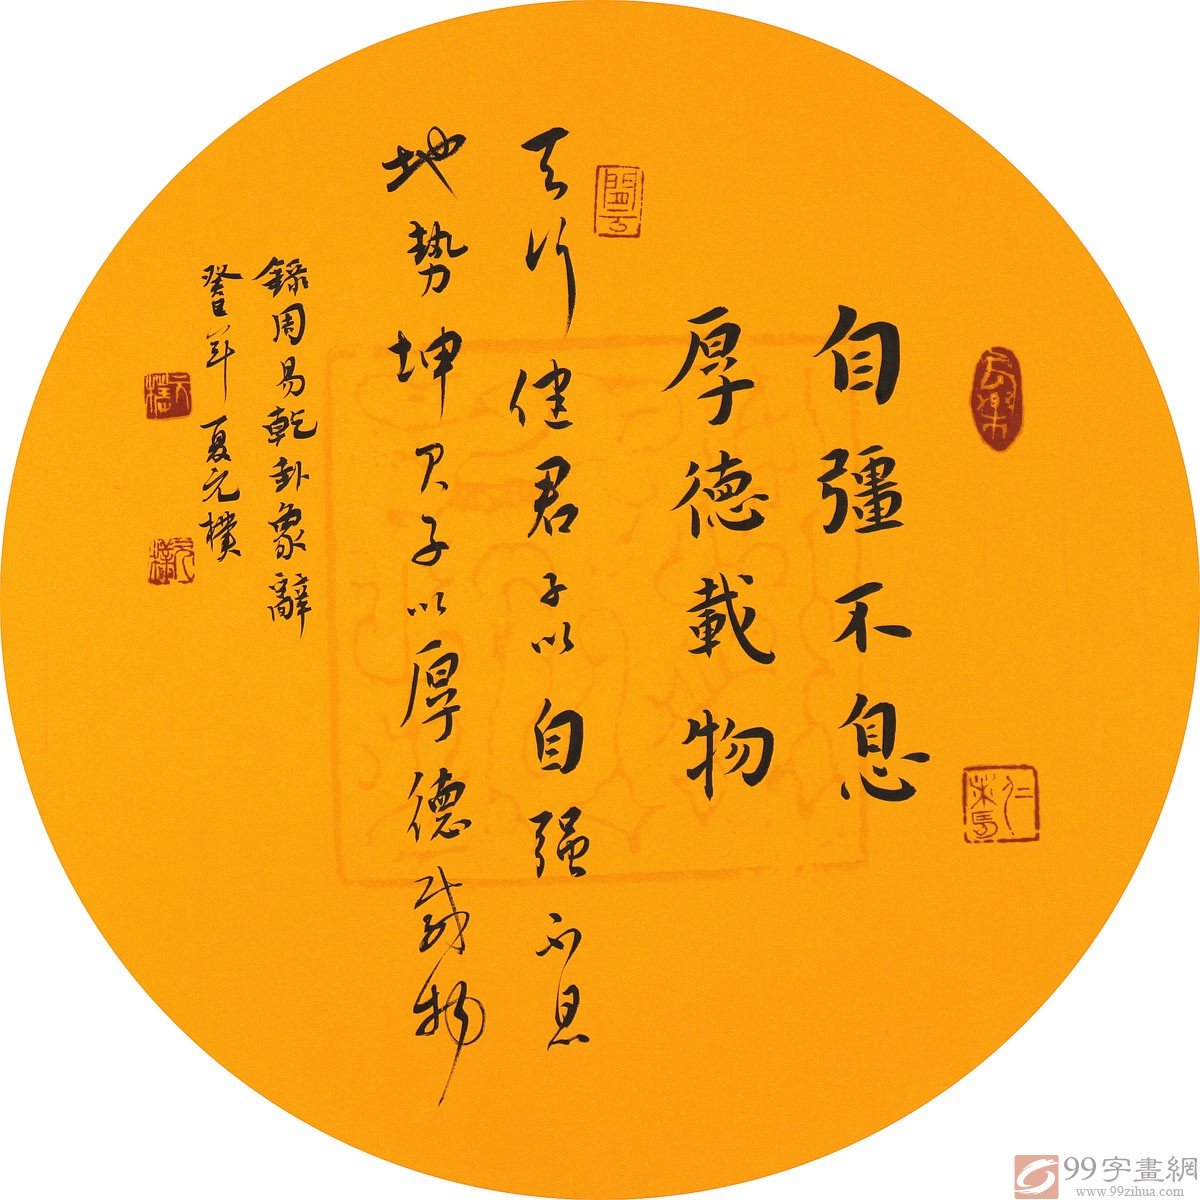 自彊不息
厚德載物
天行健君子以自强不息
地势坤君子以厚德載物
錄周易乾卦象辭
癸巳年夏元樸
99字畫網
www.99zihua.com